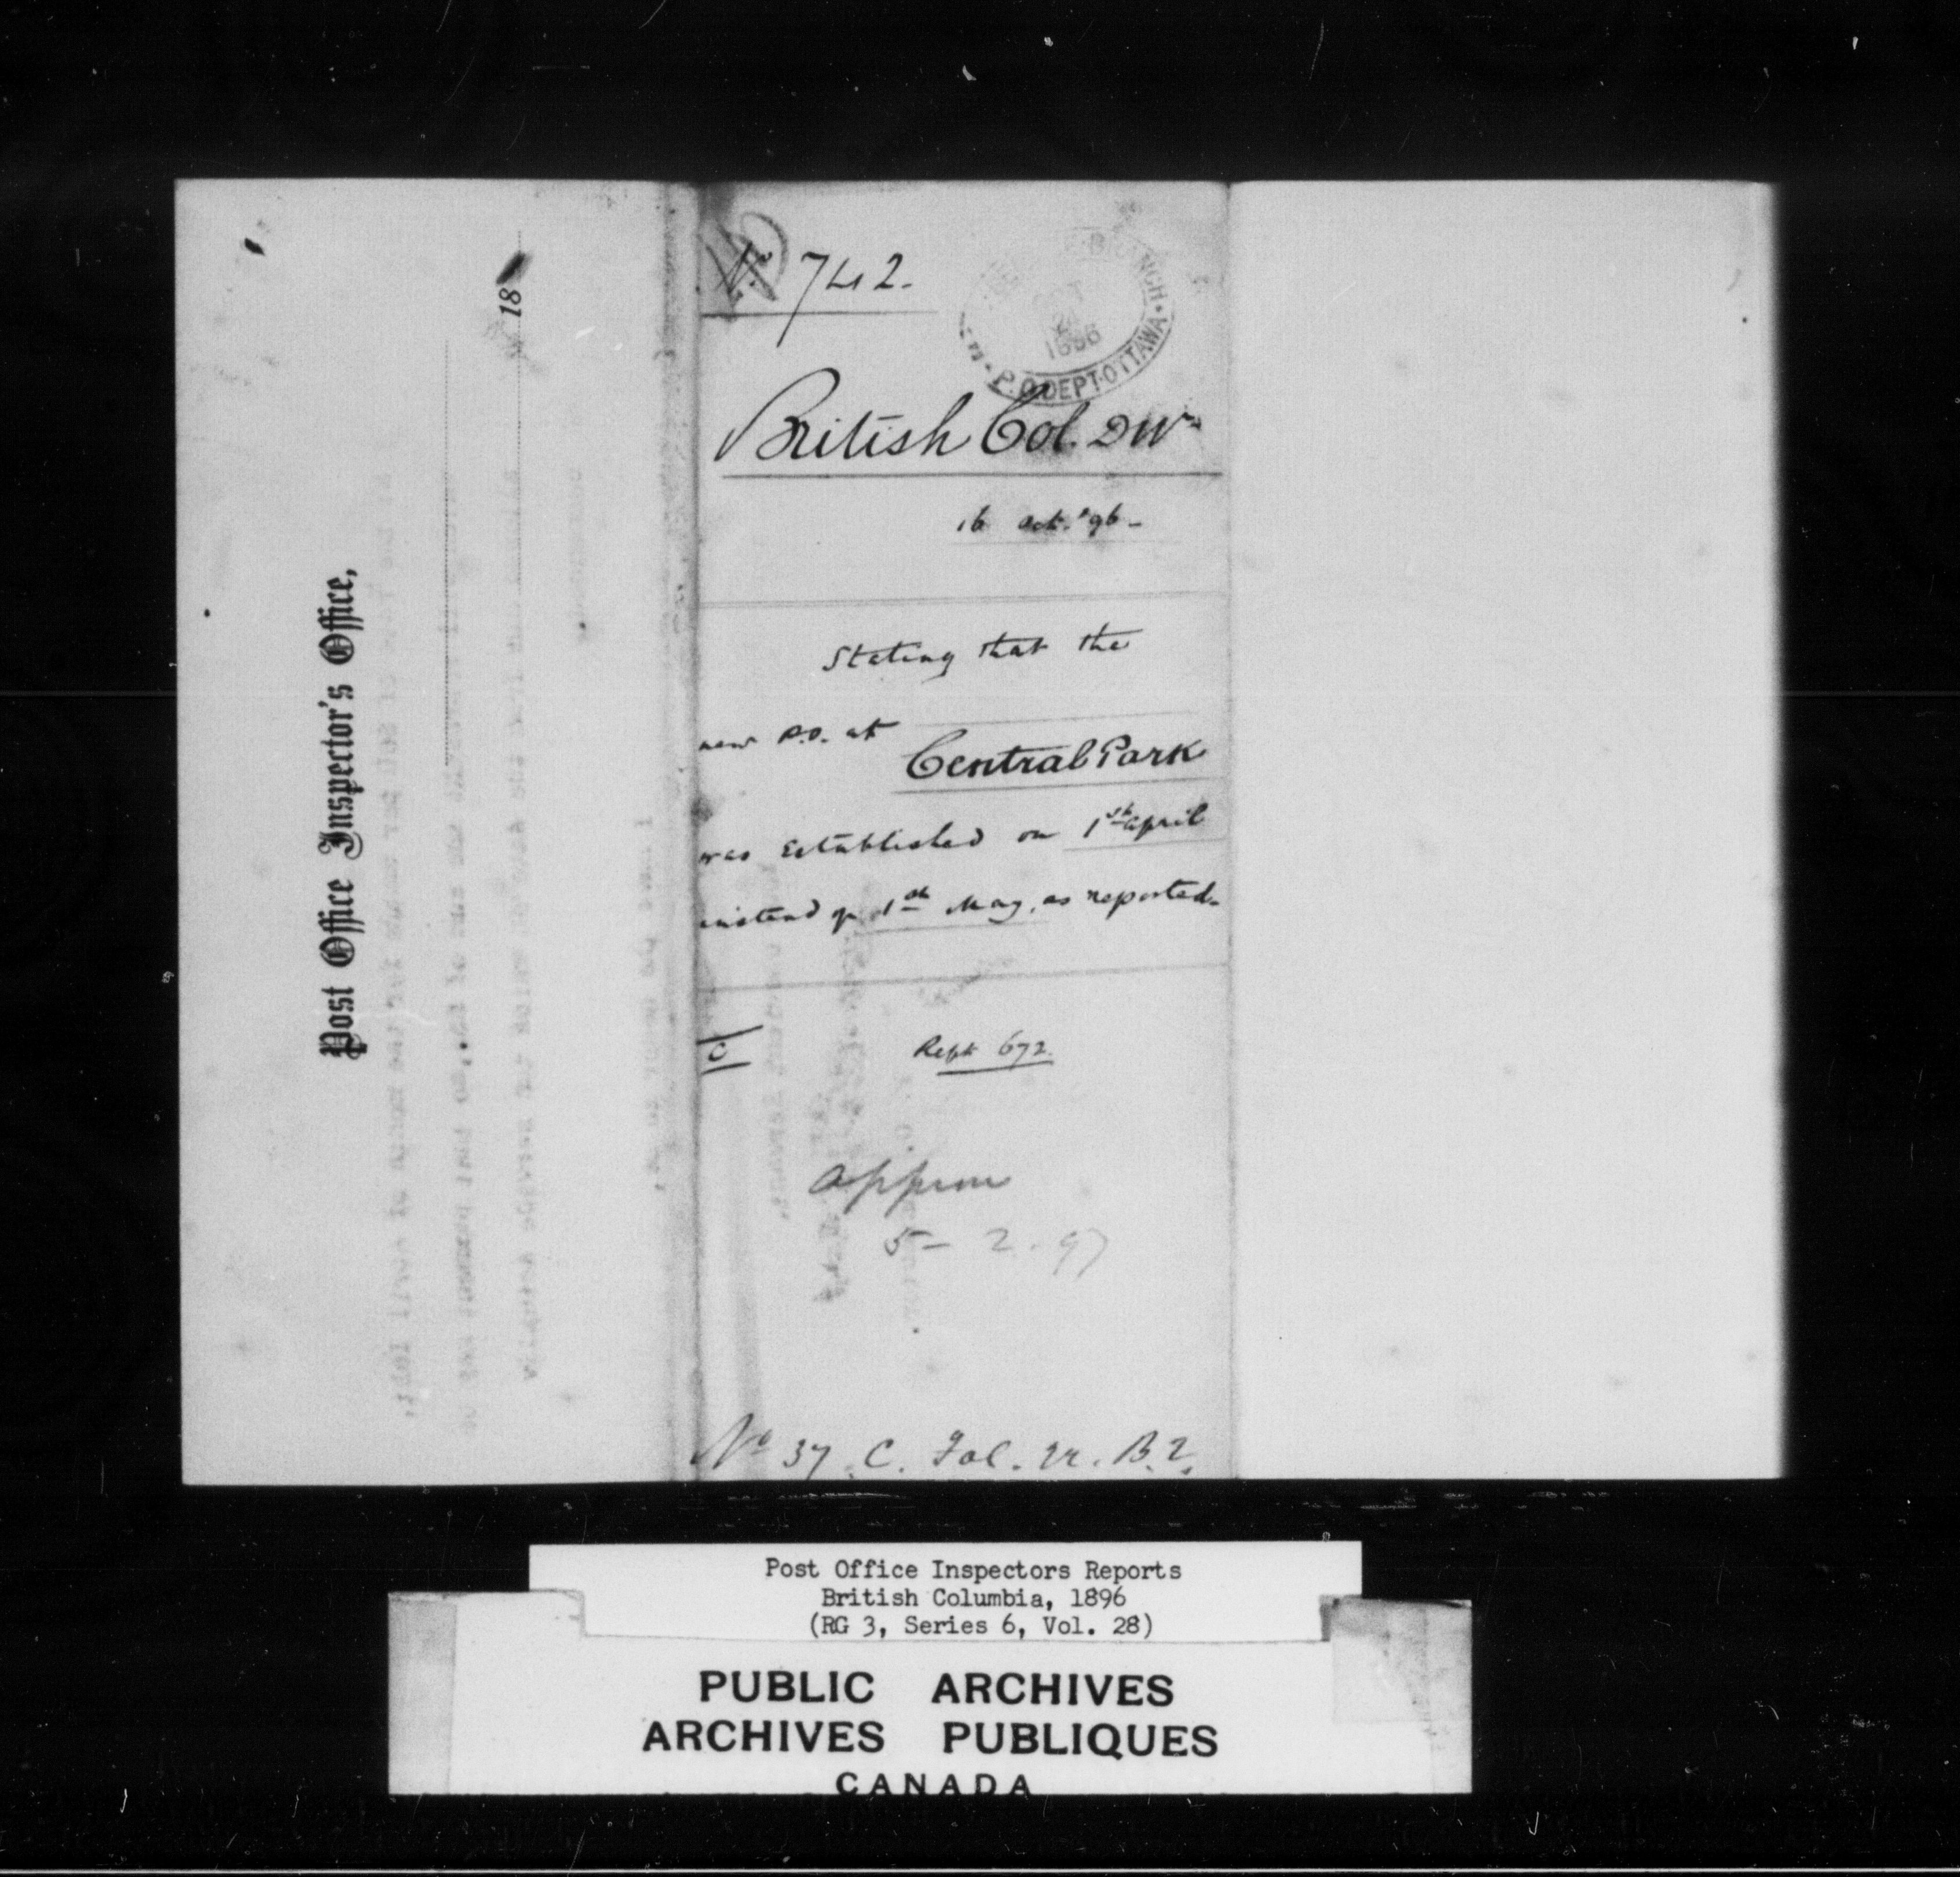 Post Office Inspector's Office,
18
No 742.
BRANCH
OCT
24
1896
P.O. DEPT. OTTAWA
British Col. Dn
16 Oct. '96 -
Stating that the
new P.O. at
Central Park
was Established on 1st April
instead of 1st May, as reported.
C
Rept 672.
5 - 2. 97
No 37 C. Fol. B.2.
Post Office Inspectors Reports
British Columbia, 1896
(RG 3, Series 6, Vol. 28)
PUBLIC ARCHIVES
ARCHIVES PUBLIQUES
CANADA